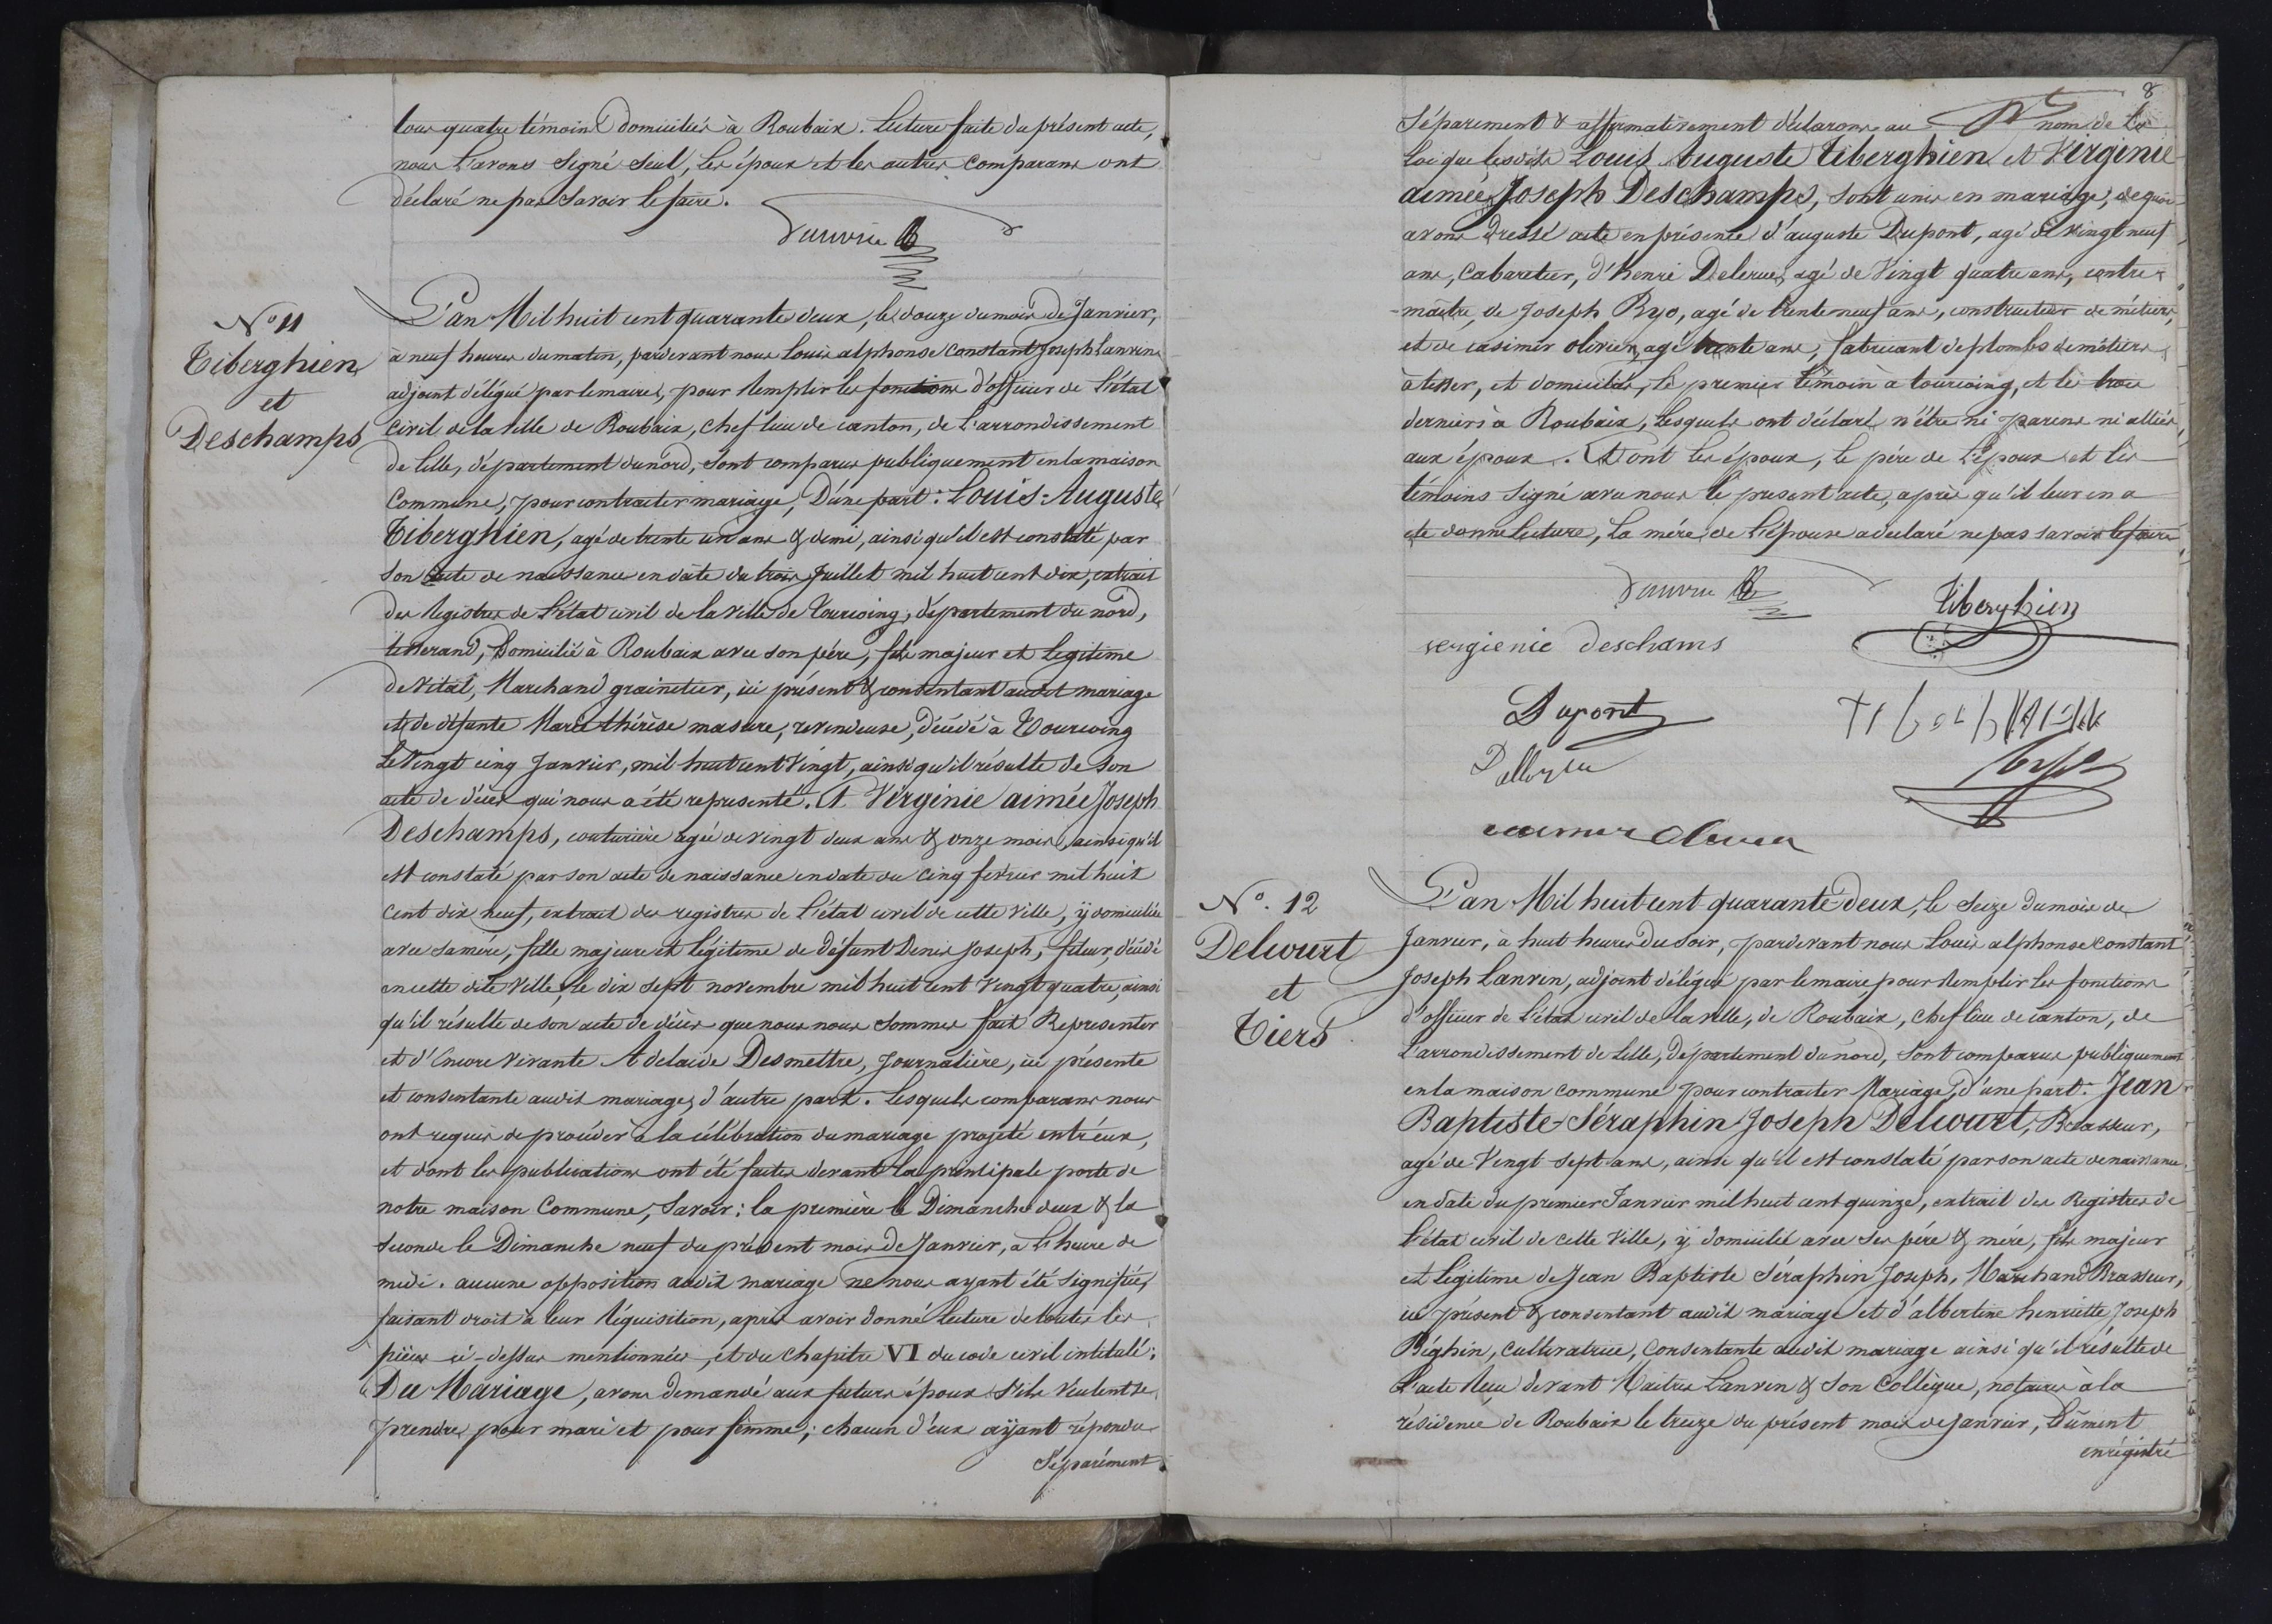 tous quatre témoins domiciliés à Roubaix. Lecture faite du présent acte,
nous l'avons signé seul, les époux et les autres comparans ont
déclaré ne pas savoir le faire.
N° 11
Tiberghien
et
Deschamps
L'an Mil huit cent quarante deux, le douze du mois de Janvier,
à neuf heures du matin, pardevant nous Louis alphonse Constant Joseph Lanvin
adjoint délégué par le maire, pour remplir les fonctions d'officier de l'état
Civil de la ville de Roubaix, chef lieu de canton, de l'arrondissement
de Lille, département du nord, sont comparus publiquement en la maison
Commune, pour contracter mariage, D'une part : Louis-Auguste
Tiberghien, agé de trente un ans & demi, ainsi qu'il est constaté par
son acte de naissance en date du trois Juillet mil huit cent dix, extrait
des registres de l'état civil de la ville de Tourcoing, département du nord,
tisserand, Domicilié à Roubaix avec son père, fils majeur et légitime
de Vital, Marchand grainetier, ici présent & consentant audit mariage
et de défunte Marie thérèse masure, revendeuse, décédé à Tourcoing
le Vingt cinq Janvier, mil huit cent Vingt, ainsi qu'il résulte de son
acte de décès qui nous a été representé. Et Virginie aimée Joseph
Deschamps, couturière agée de vingt deux ans & onze mois, ainsi qu'il
est constaté par son acte de naissance en date du cinq fevrier mil huit
Cent dix neuf, extrait des registres de l'état civil de cette Ville, ÿ domiciliée
avec sa mère, fille majeure et légitime de défunt Denis Joseph, fileur, décédé
en cette dite Ville, le dix sept novembre mil huit cent Vingt quatre, ainsi
qu'il résulte de son acte de décès que nous nous sommes fait Representer
et d'encore vivante Adelaïde Desmettre, Journalière, ici présente
et consentante audit mariage, d'autre part. Lesquels comparans nous
ont requis de procéder à la célébration du mariage projeté entr'eux,
et dont les publications ont été faites devant la principale porte de
notre maison Commune, Savoir : la première le Dimanche deux & la
seconde le Dimanche neuf du présent mois de Janvier, à l'heure de
midi. aucune opposition audit mariage ne nous ayant été signifiée,
faisant droit à leur réquisition, après avoir donné lecture de toutes les
pièces ci-dessus mentionnées, et du chapitre VI du code civil intitulé :
Du Mariage, avons demandé aux futurs époux s'ils veulent se
prendre pour mari et pour femme ; chacun d'eux aÿant répondu
Séparément
8
Séparement & affirmativement déclarons au nom de la
Loi que lesdits Louis Auguste Tiberghien et Virginie
aimée Joseph Deschamps, sont unis en mariage, de quoi
avons dressé acte en présence d'auguste Dupont, agé de vingt neuf
ans, Cabaretier, d'henri Delerue, agé de Vingt quatre ans, contre
-maître, de Joseph Ryo, agé de trente neuf ans, constructeur de métiers,
et de casimir olivier, agé trente ans, fabricant de plombs de métiers
à tisser, et domiciliés, le premier témoin à tourcoing, et les trois
derniers à Roubaix, lesquels ont déclaré n'être ni parens ni alliés
aux époux. Et ont les époux, le père de l'époux et les
témoins signé avec nous le present acte, après qu'il leur en a
été donné lecture, la mére de l'épouse a declaré ne pas savoir le faire
Tiberghien
vergienie deschams
Dupont
N°. 12
Delcourt
et
Tiers
L'an Mil huit cent quarante-deux, le Seize du mois de
Janvier, à huit heures du soir, pardevant nous Louis alphonse Constant
Joseph Lanvin, adjoint délégué par le maire, pour remplir les fonctions
d'officier de l'état civil de la ville, de Roubaix, Chef lieu de canton, de
L'arrondissement de Lille, Département du nord, sont comparus publiquement
en la maison commune pour contracter Mariage, d'une part : Jean
Baptiste-Séraphin Joseph Delcourt, Brasseur,
agé de Vingt sept ans, ainsi qu'il est constaté par son acte de naissance
en date du premier Janvier mil huit cent quinze, extrait des Registres de
l'état civil de cette Ville, ÿ domicilié avec ses père & mère, fils majeur
et légitime de Jean Baptiste Séraphin Joseph, Marchand Brasseur,
ici présent & consentant audit mariage et d'albertine henriette Joseph
Béghin, Cultivatrice, consentante audit mariage ainsi qu'il résulte de
l'acte reçu devant Maîtres Lanvin & son Collègue, notaires à la
résidence de Roubaix le treize du présent mois de janvier, Dûment
enrégistré